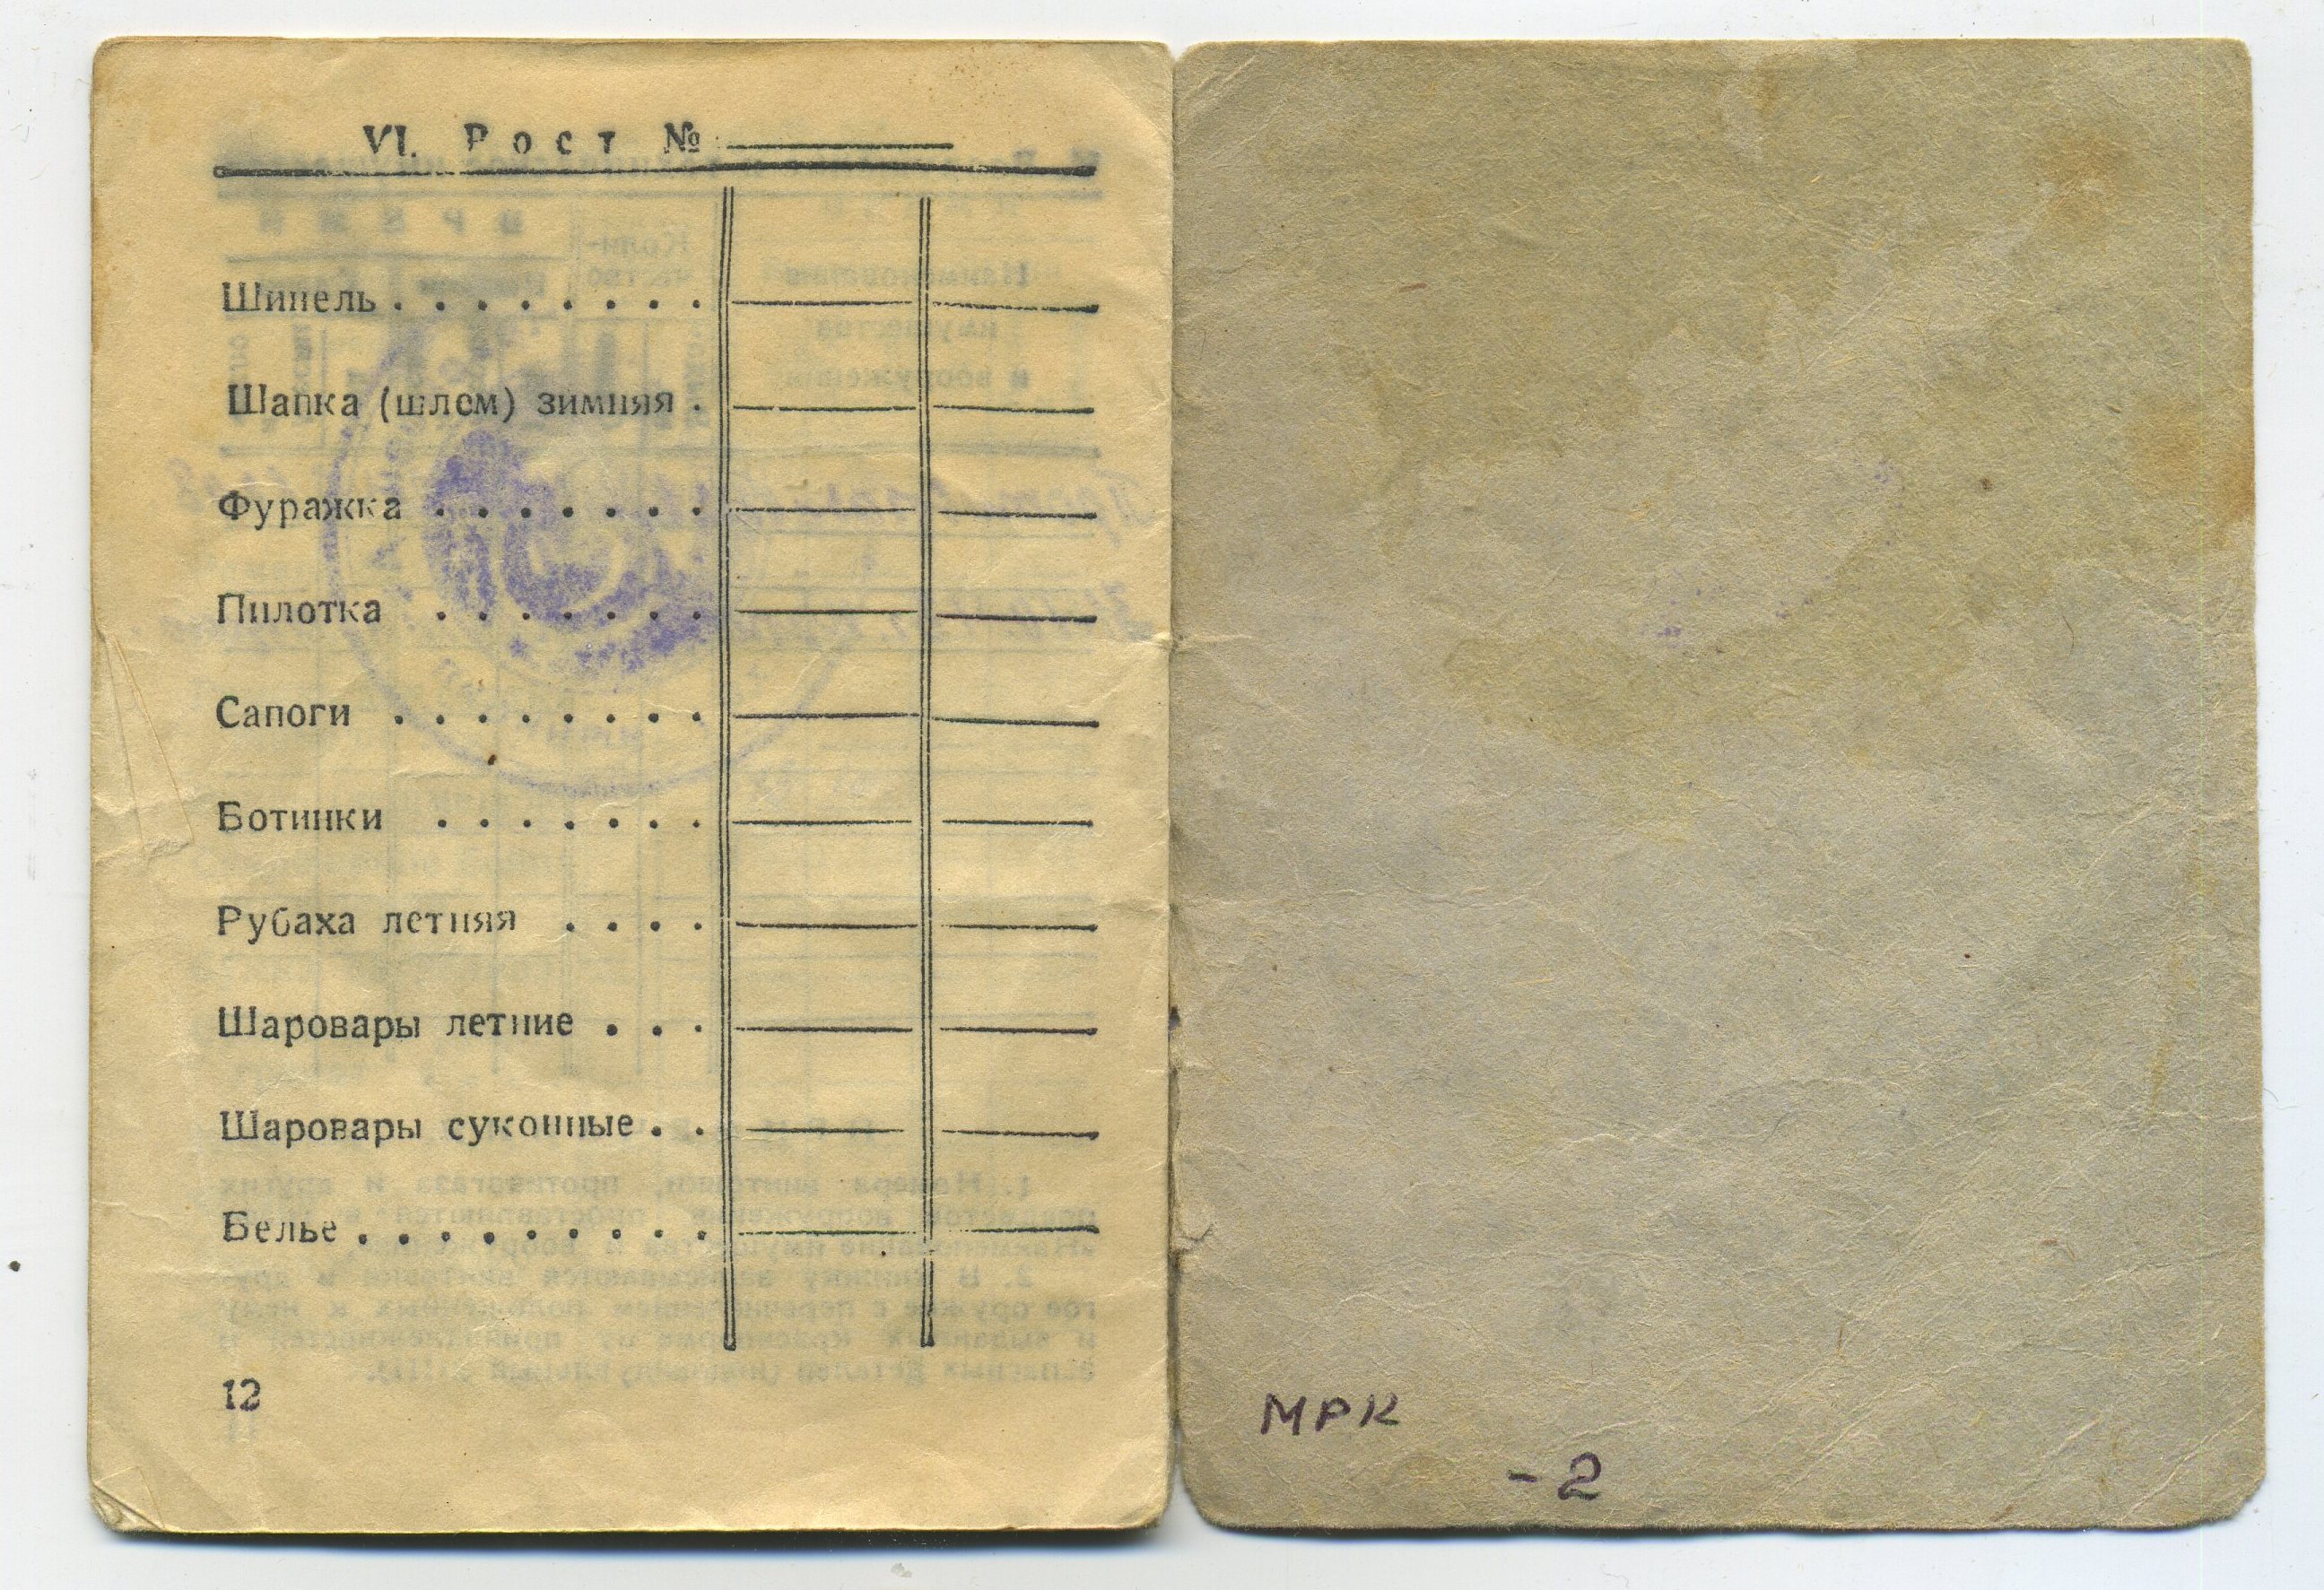 VI. Рост №
Шинель . . . . . . . .
Шапка (шлем) зимняя .
Фуражка . . . . . . .
Пилотка . . . . . . .
Сапоги . . . . . . . .
Ботинки . . . . . . .
Рубаха летняя . . . .
Шаровары летние . . .
Шаровары суконные . .
Белье . . . . . . . . .
12
МРК
-2